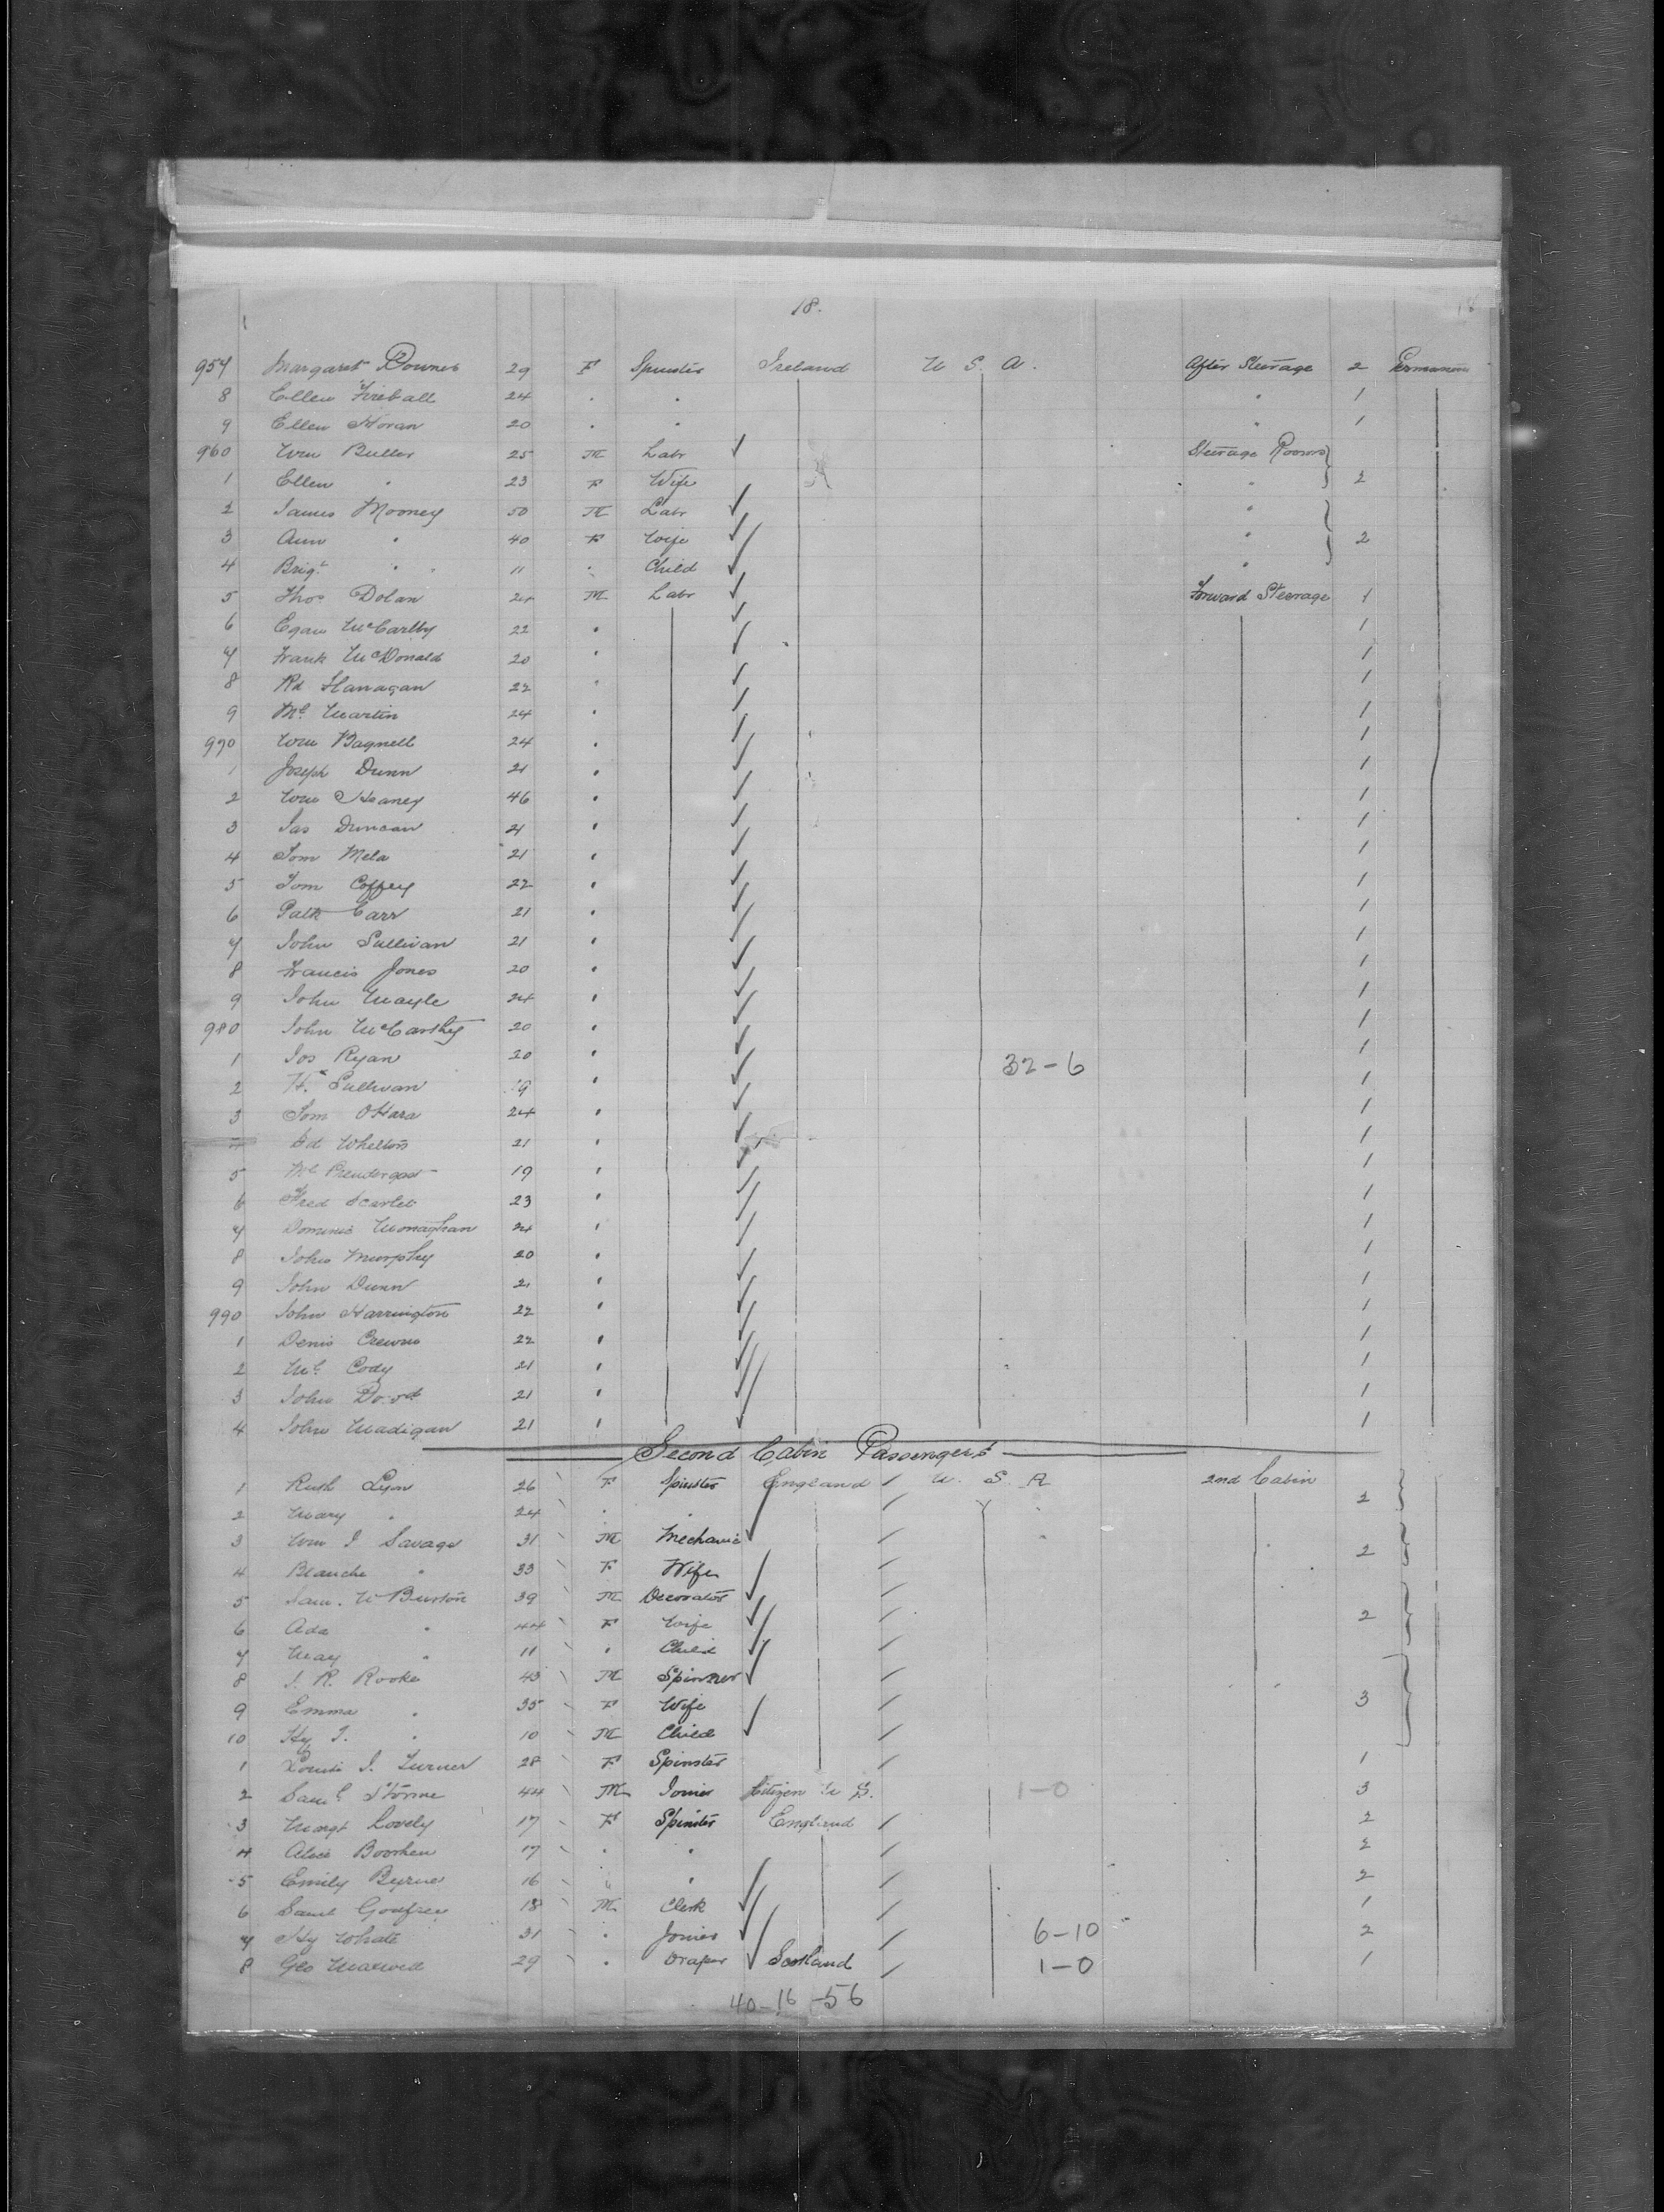 18.
957 Margaret Downes 29 F Spinster Ireland U S A. After Steerage 2 Permanent
8 Ellen Fireball 24 " " " 1
9 Ellen Horan 20 " " " 1
960 Wm Butler 25 M Labr Steerage Rooms
1 Ellen " 23 F Wife " 2
2 James Mooney 50 M Labr "
3 Ann " 40 F Wife " 2
4 Brigt " 11 " Child "
5 Thos Dolan 24 M Labr Forward Steerage 1
6 Egan McCarthy 22 " 1
7 Frank McDonald 20 " 1
8 Rd Flanagan 22 " 1
9 Ml Martin 24 " 1
970 Wm Bagnell 24 " 1
1 Joseph Dunn 21 " 1
2 Wm Heaney 46 " 1
3 Jas Duncan 21 " 1
4 Tom Mela 21 " 1
5 Tom Coffey 22 " 1
6 Patk Carr 21 " 1
7 John Sullivan 21 " 1
8 Francis Jones 20 " 1
9 John Mayle 24 " 1
980 John McCarthy 20 " 1
1 Jos Ryan 20 " 32-6 1
2 H. Sullivan 19 " 1
3 Tom OHara 24 " 1
4 Ed Whelton 21 " 1
5 Ml Prendergast 19 " 1
6 Fred Scarlet 23 " 1
7 Dominic Monaghan 24 " 1
8 John Murphy 20 " 1
9 John Dunn 21 " 1
990 John Harrington 22 " 1
1 Denis 22 " 1
2 Ml Cody 21 " 1
3 John 21 " 1
4 John Madigan 21 " 1
Second Cabin Passengers
1 Ruth Lyon 26 F Spinster England U. S. A 2nd Cabin
2 Mary " 24 " " 2
3 Wm J Savage 31 M Mechanic
4 Blanche " 33 F Wife 2
5 Sam. W Burton 39 M Decorator
6 Ada " 44 F Wife 2
7 May " 11 " Child
8 J. R. Rooke 43 M Spinner
9 Emma " 35 F Wife 3
10 Hy J. " 10 M Child
1 Louisa J. Turner 28 F Spinster 1
2 Saml 44 M Joiner Citizen U S. 1-0 3
3 Margt Lovely 17 F Spinster England 2
4 Alice 17 " " 2
5 Emily Byrne 16 " " 2
6 Saml Godfrey 18 M Clerk 1
7 Hy White 31 " Joiner 6-10 2
8 Geo 29 " Draper Scotland 1-0 1
40-16-56